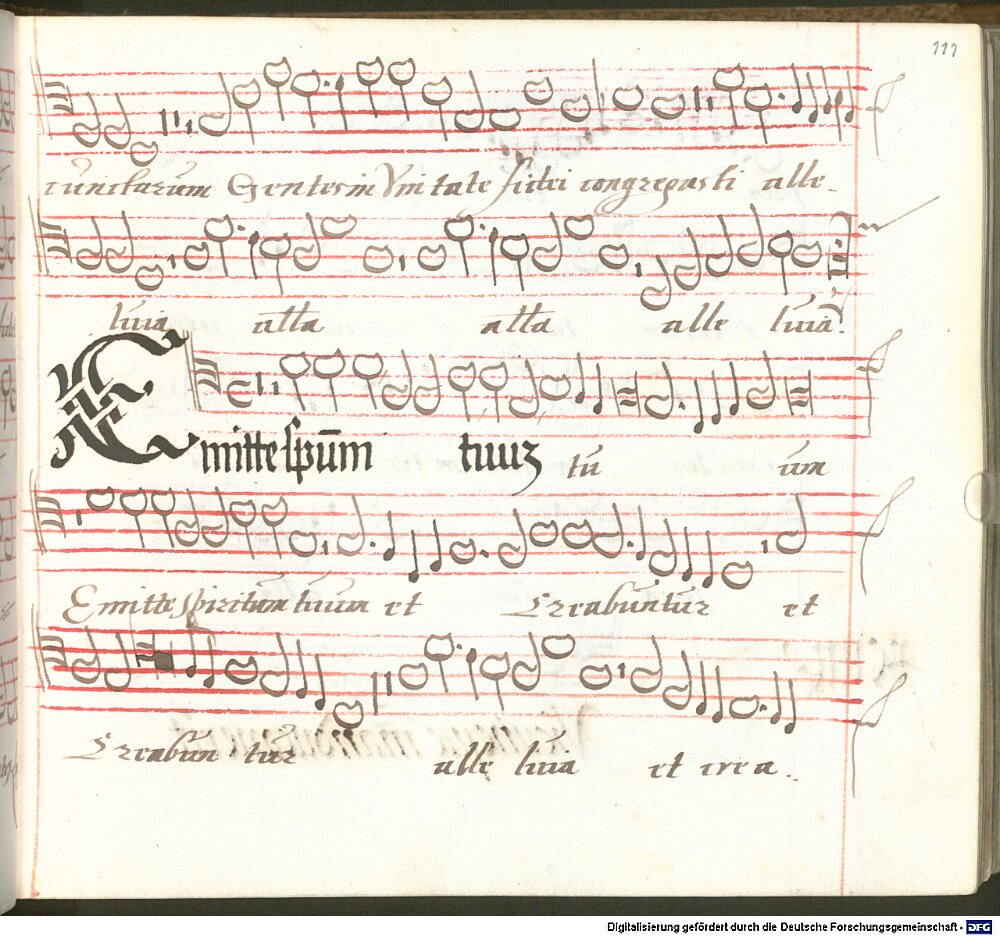 111
cunctarum Gentes in Vnitate fidei congregasti alle-
luia alla alla alle luia.
Emitte spūm tuuʒ tu um
Emitte spiritum tuum et Creabuntur et
Creabun tur alle luia et crea..
Digitalisierung gefördert durch die Deutsche Forschungsgemeinschaft - DFG